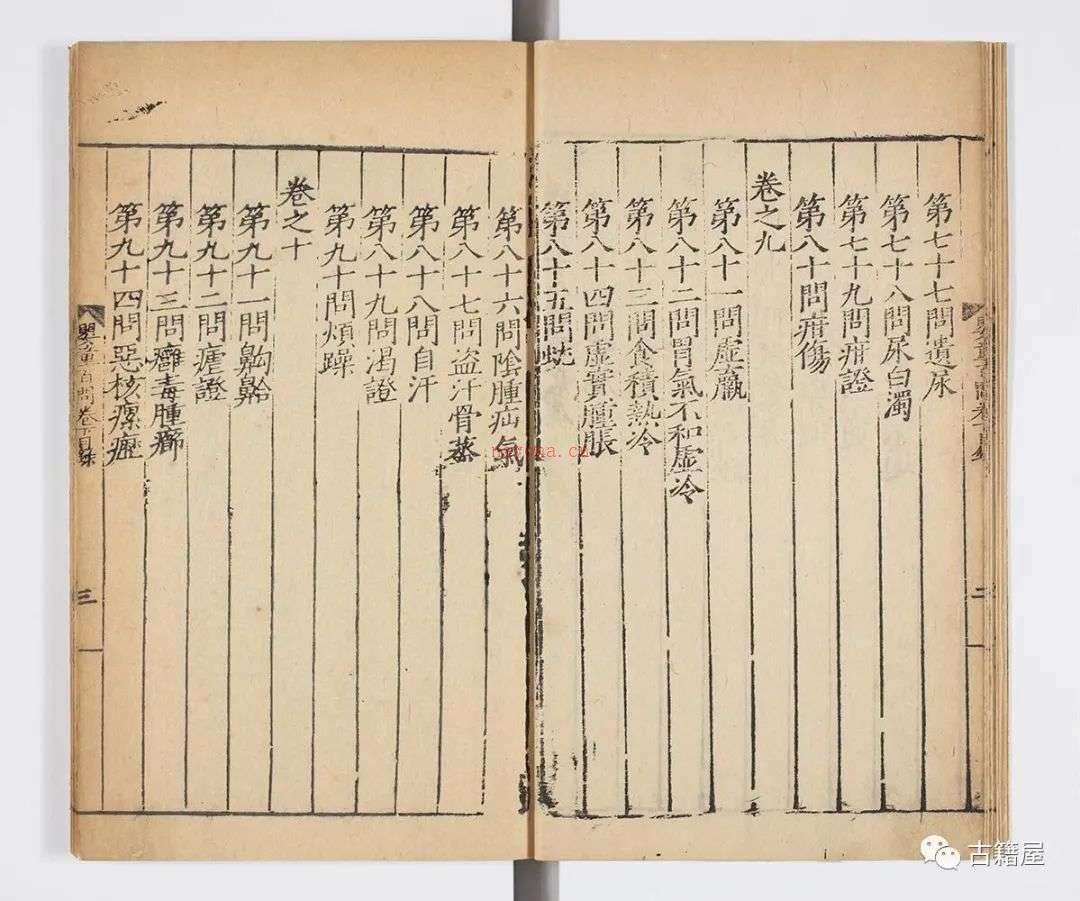 嬰童百問卷下目錄
二
第七十七問遺尿
第七十八問尿白濁
第七十九問疳證
第八十問疳傷
卷之九
第八十一問虛羸
第八十二問胃氣不和虛冷
第八十三問食積熱冷
第八十四問虛實腫脹
第八十五問蚘
第八十六問陰腫疝氣
第八十七問盜汗骨蒸
第八十八問自汗
第八十九問渴證
第九十問煩躁
卷之十
第九十一問齁䶎
第九十二問瘧證
第九十三問癰毒腫癤
第九十四問惡核瘰癧
嬰童百問卷下目錄
三
古籍屋